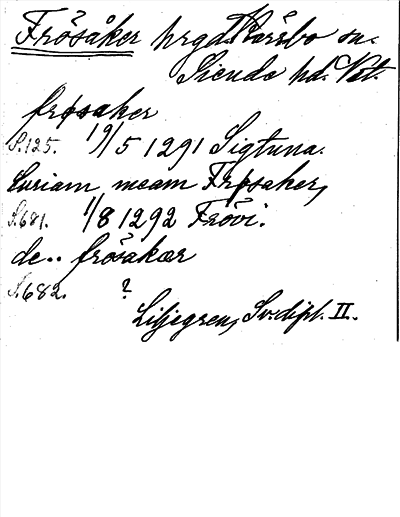 Frösåker hrgd Kärrbo sn.
Siende hd. Vstl.
frøsaker
S. 125. 19/5 1291 Sigtuna.
Curiam meam Frøsaker,
S. 681. 1/8 1292 Frövi.
de.. frösakær
S. 682. ?
Liljegren, Sv. dipl. II.